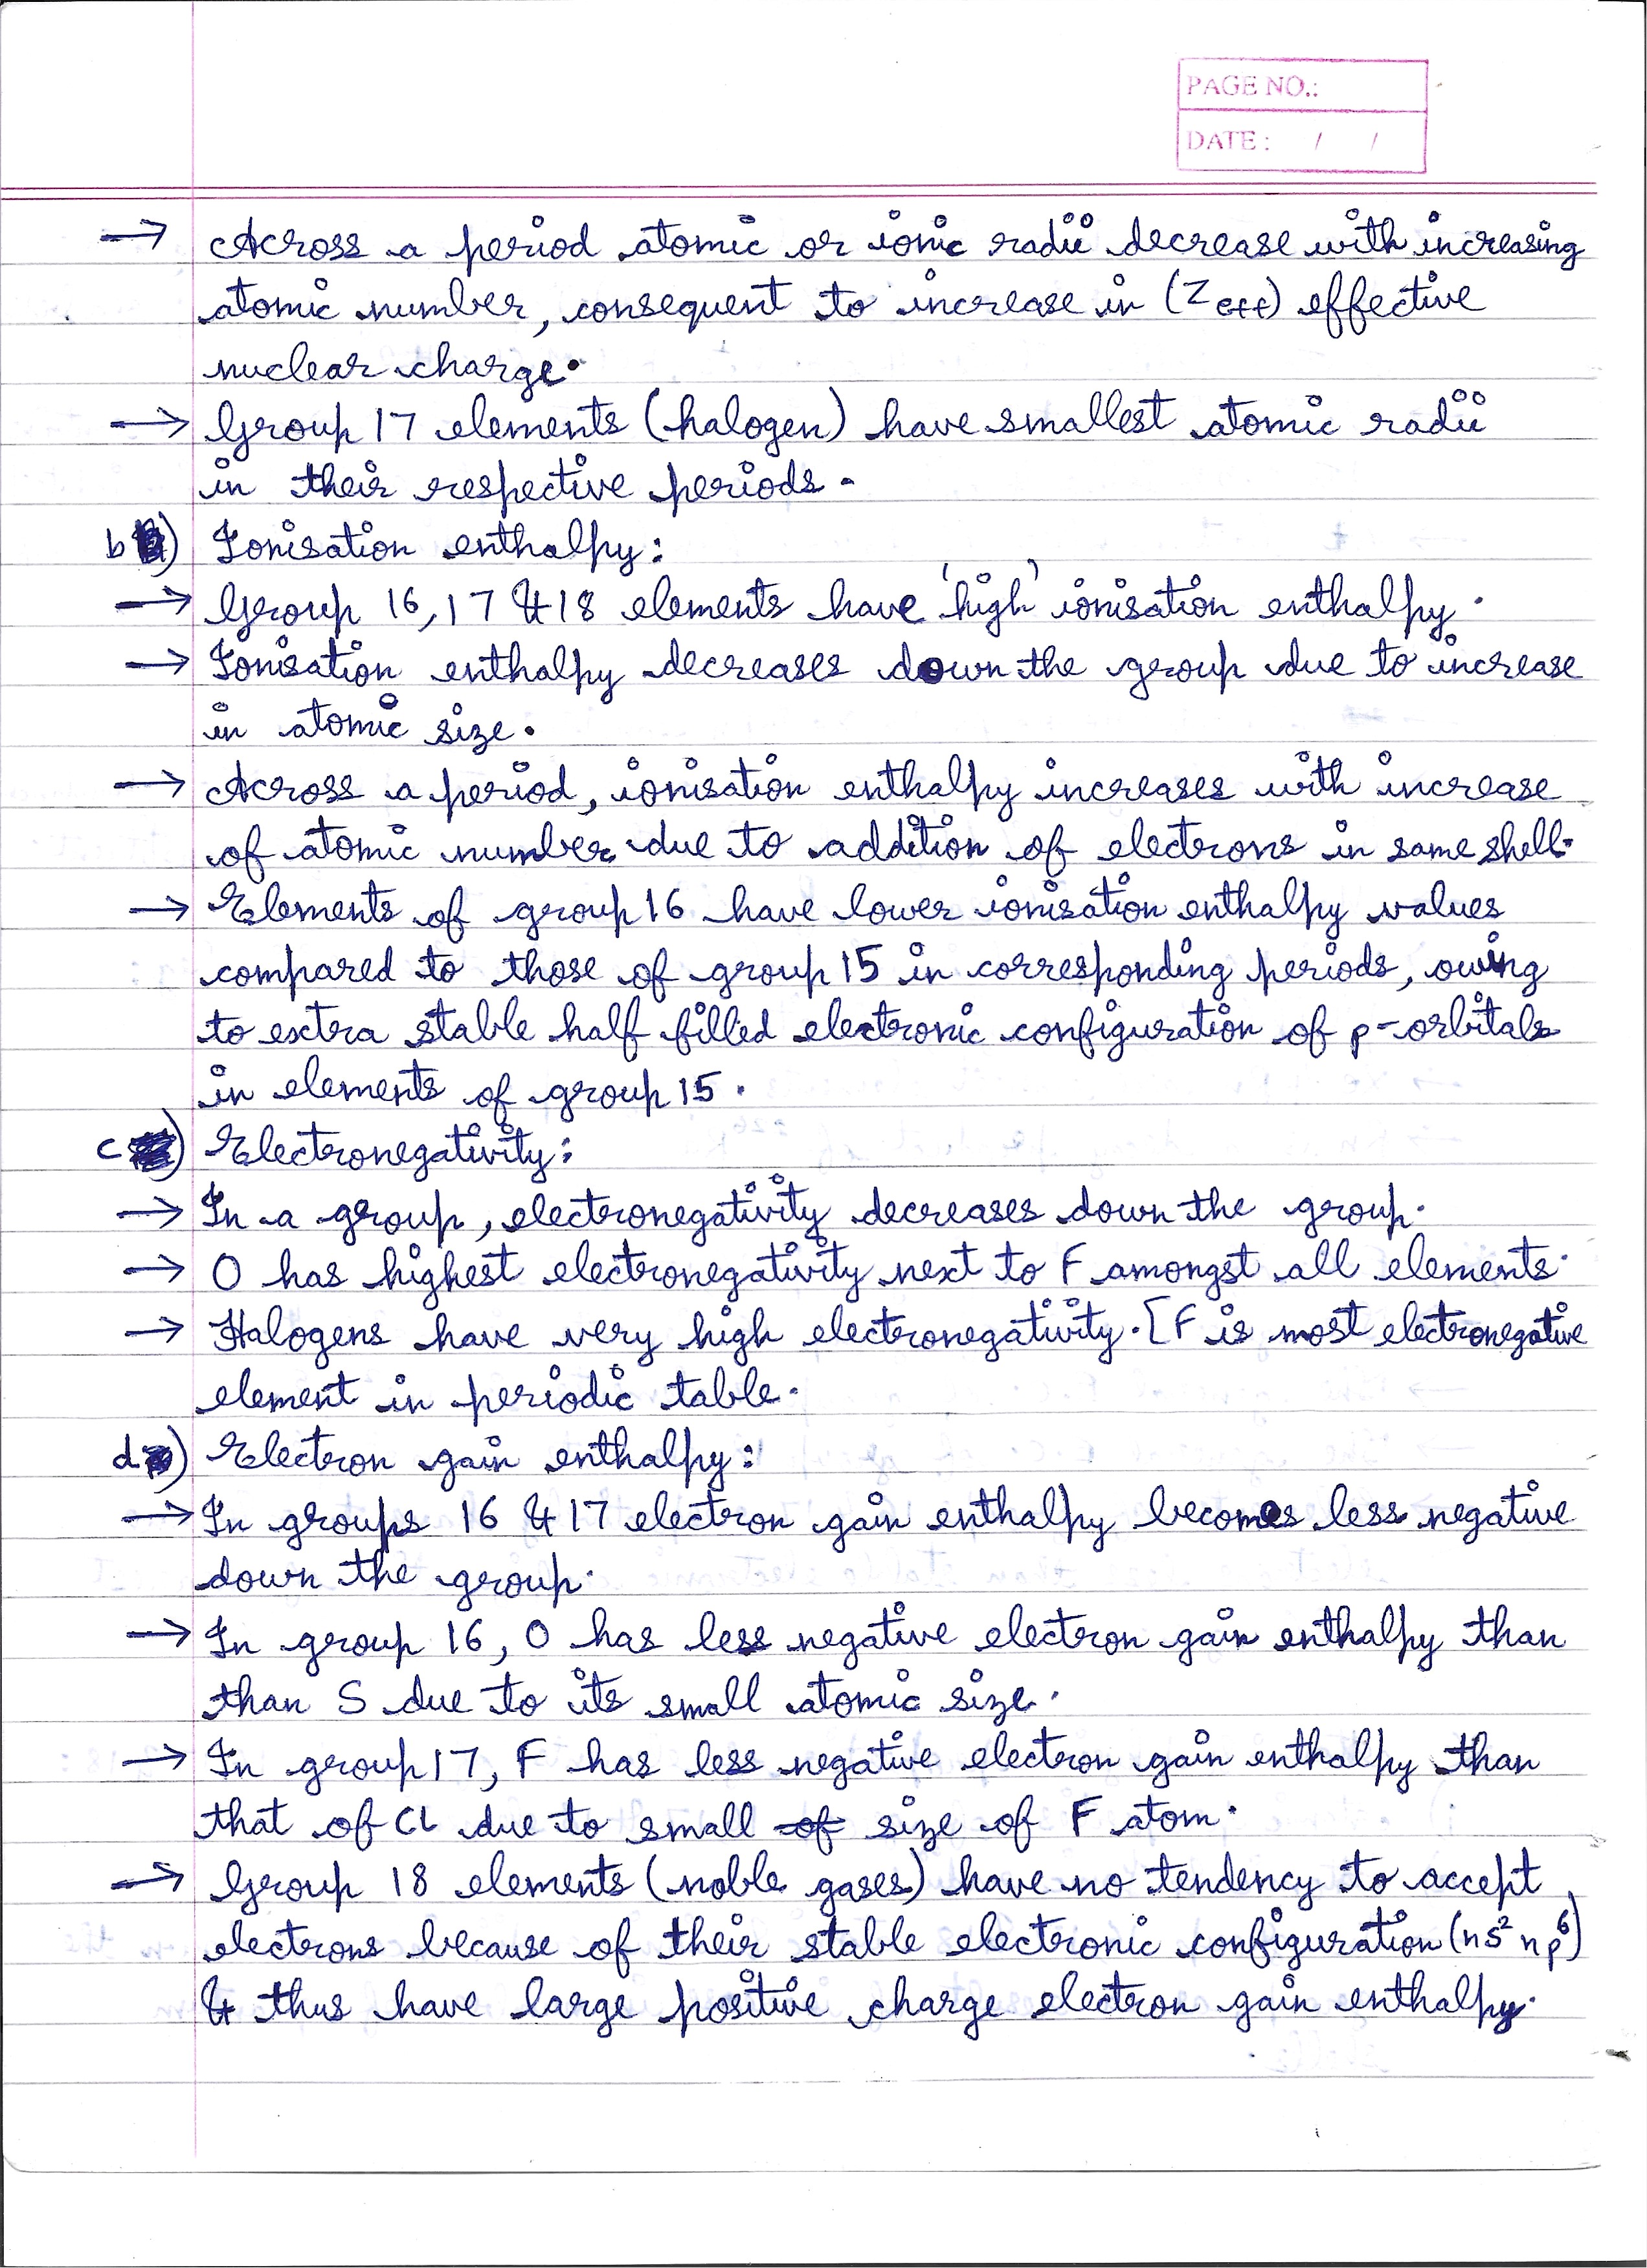 PAGE NO.:
DATE: / /
→ Across a period atomic or ionic radii decrease with increasing
atomic number, consequent to increase in (Zeff) effective
nuclear charge.
→ Group 17 elements (halogen) have smallest atomic radii
in their respective periods.
b) Ionisation enthalpy:
→ Group 16, 17 & 18 elements have 'high' ionisation enthalpy.
→ Ionisation enthalpy decreases down the group due to increase
in atomic size.
→ Across a period, ionisation enthalpy increases with increase
of atomic number due to addition of electrons in same shell.
→ Elements of group 16 have lower ionisation enthalpy values
compared to those of group 15 in corresponding periods, owing
to extra stable half filled electronic configuration of p-orbitals
in elements of group 15.
c) Electronegativity:
→ In a group, electronegativity decreases down the group.
→ O has highest electronegativity next to F amongst all elements.
→ Halogens have very high electronegativity. [F is most electronegative
element in periodic table.
d) Electron gain enthalpy:
→ In groups 16 & 17 electron gain enthalpy becomes less negative
down the group.
→ In group 16, O has less negative electron gain enthalpy than
than S due to its small atomic size.
→ In group 17, F has less negative electron gain enthalpy than
that of Cl due to small of size of F atom.
→ Group 18 elements (noble gases) have no tendency to accept
electrons because of their stable electronic configuration (ns² np⁶)
& thus have large positive charge electron gain enthalpy.